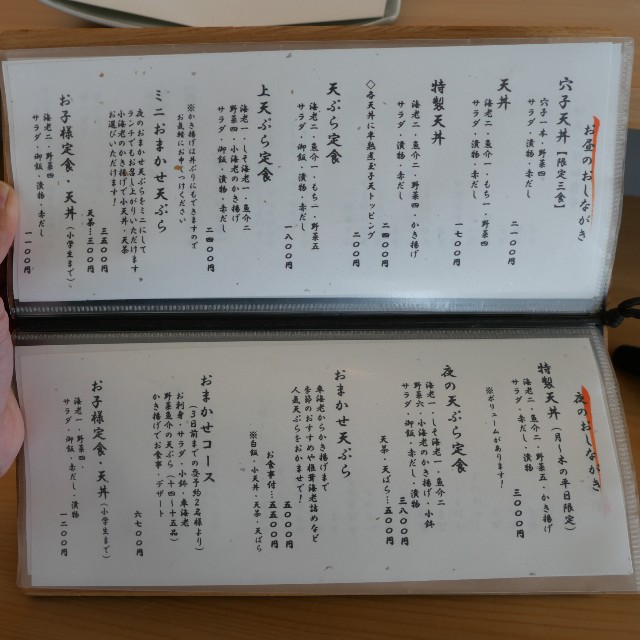 お昼のおしながき
穴子天丼「限定三食」
穴子一本・野菜四
サラダ・漬物・赤だし
二一〇〇円
天丼
海老二・魚介一・もち一・野菜四
サラダ・漬物・赤だし
一七〇〇円
特製天丼
海老二・魚介二・野菜四・かき揚げ
サラダ・漬物・赤だし
二四〇〇円
◇各天丼に半熟煮玉子天トッピング
二〇〇円
天ぷら定食
海老二・魚介一・もち一・野菜五
サラダ・御飯・漬物・赤だし
一八〇〇円
上天ぷら定食
海老一・しそ海老一・魚介二
野菜四・小海老のかき揚げ
サラダ・御飯・漬物・赤だし
二四〇〇円
※かき揚げは丼ぶりにもできますので
お気軽にお申しつけください
ミニおまかせ天ぷら
夜のおまかせ天ぷらをミニにして
ランチでもお召し上がりいただけます。
小海老のかき揚げで小天丼・天茶
お選びいただけます!
三五〇〇円
天茶…三〇〇円
お子様定食・天丼(小学生まで)
海老二・野菜四
サラダ・御飯・漬物・赤だし
一一〇〇円
夜のおしながき
特製天丼(月~木の平日限定)
海老二・魚介二・野菜五・かき揚げ
サラダ・赤だし・漬物
三〇〇〇円
※ボリュームがあります!
夜の天ぷら定食
海老一・しそ海老一・魚介二
野菜六・小海老のかき揚げ・小鉢
サラダ・御飯・赤だし・漬物
三八〇〇円
天茶・天ばら…五〇〇円
おまかせ天ぷら
車海老からかき揚げまで
季節のおすすめや椎茸海老詰めなど
人気天ぷらをおかませで!
五〇〇〇円
お食事付…五五〇〇円
※白飯・小天丼・天茶・天ばら
おまかせコース
(3日前までの要予約2名様より)
お刺身・サラダ・小鉢・車海老
野菜魚介の天ぷら(十四~十五品)
かき揚げでお食事・デザート
六七〇〇円
お子様定食・天丼(小学生まで)
海老一・野菜四・
サラダ・御飯・赤だし・漬物
一二〇〇円